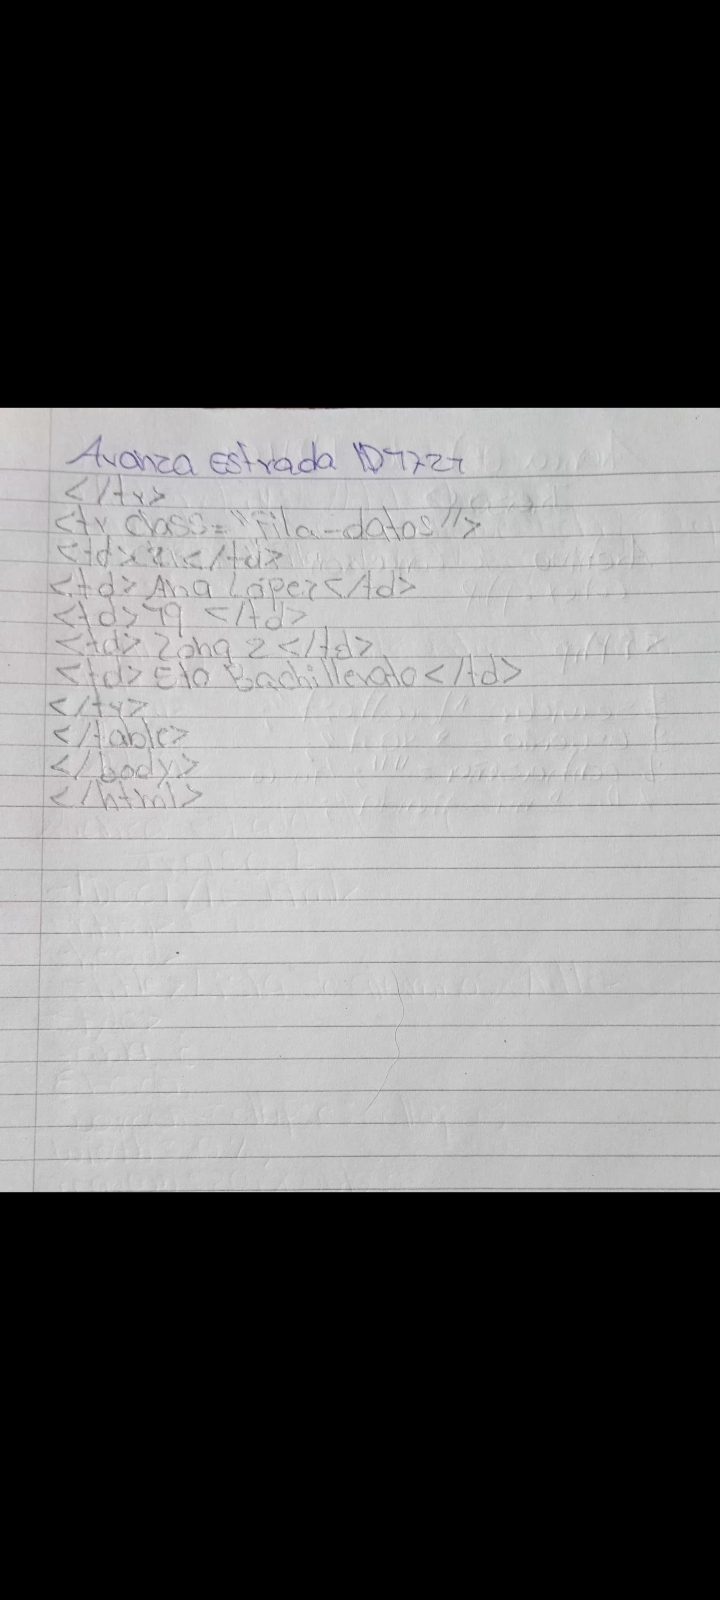 Avanza Estrada ID
</tr>
<tr class="fila-datos">
<td> </td>
<td> Ana López</td>
<td> </td>
<td> Zona 2 </td>
<td> Bachillerato </td>
</tr>
</table>
</body>
</html>